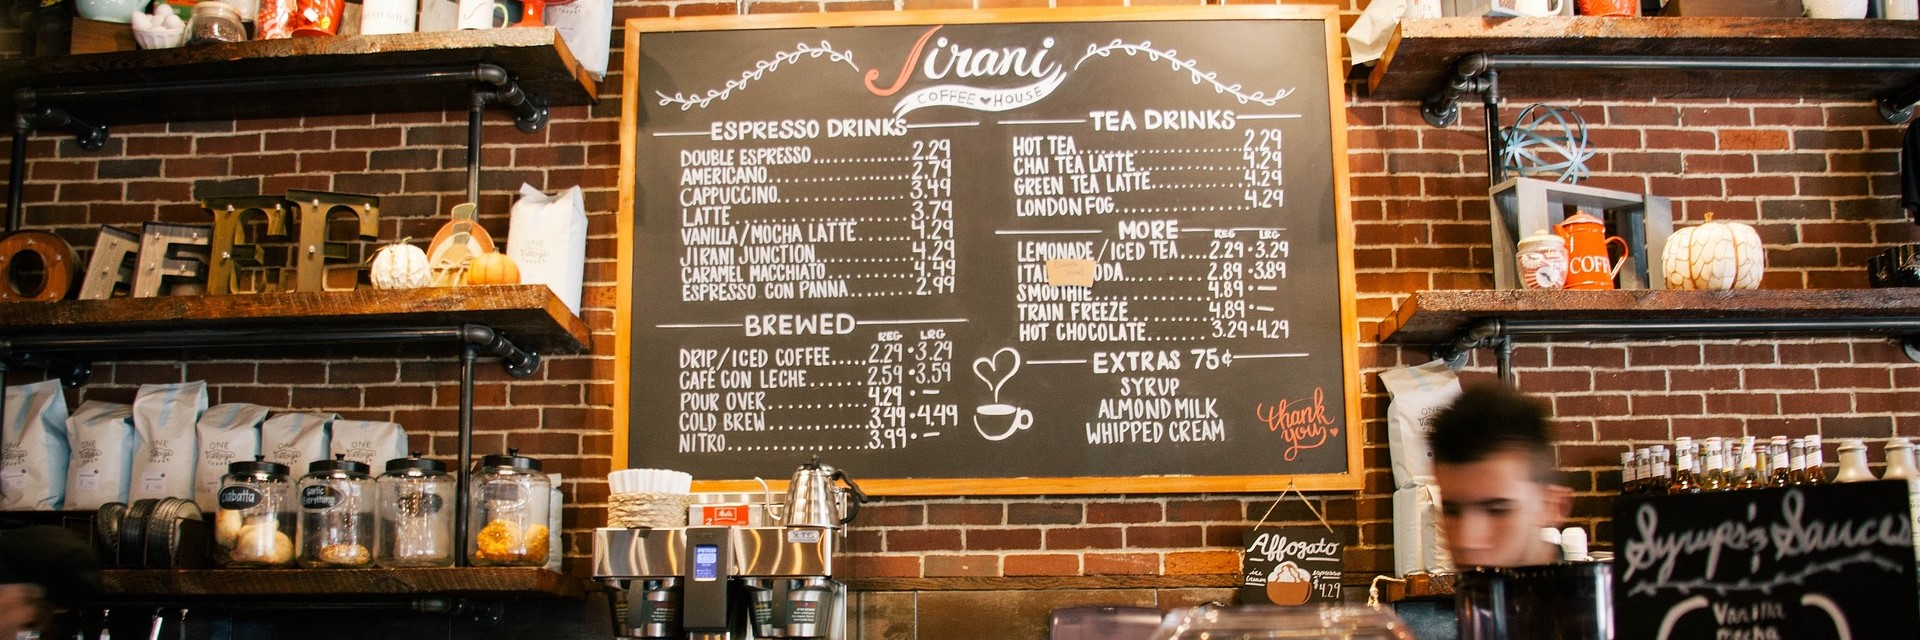 Jirani
COFFEE HOUSE
ESPRESSO DRINKS
DOUBLE ESPRESSO..................2.29
AMERICANO..................2.79
CAPPUCCINO..................3.49
LATTE..................3.79
VANILLA/MOCHA LATTE.......4.29
JIRANI JUNCTION............4.29
CARAMEL MACCHIATO.........4.49
ESPRESSO CON PANNA........2.99
BREWED
REG LRG
DRIP/ICED COFFEE.....2.29•3.29
CAFÉ CON LECHE......2.59•3.59
POUR OVER..........4.29•—
COLD BREW..........3.49•4.49
NITRO..............3.99•—
TEA DRINKS
HOT TEA..................2.29
CHAI TEA LATTE............4.29
GREEN TEA LATTE...........4.29
LONDON FOG...............4.29
MORE
REG LRG
LEMONADE/ICED TEA....2.29•3.29
ITAL ODA.........2.89•3.89
SMOOTHIE..........4.89•—
TRAIN FREEZE........4.89•—
HOT CHOCOLATE.......3.29•4.29
EXTRAS 75¢
SYRUP
ALMOND MILK
WHIPPED CREAM
thank
you
COFFEE
ONE
Village
COFFEE
ONE
Village
Ciabatta
Garlic
Everything
Melitta
COFF
Affogato
ice
cream
espresso
$4.29
Syrups & Sauces
Vanilla